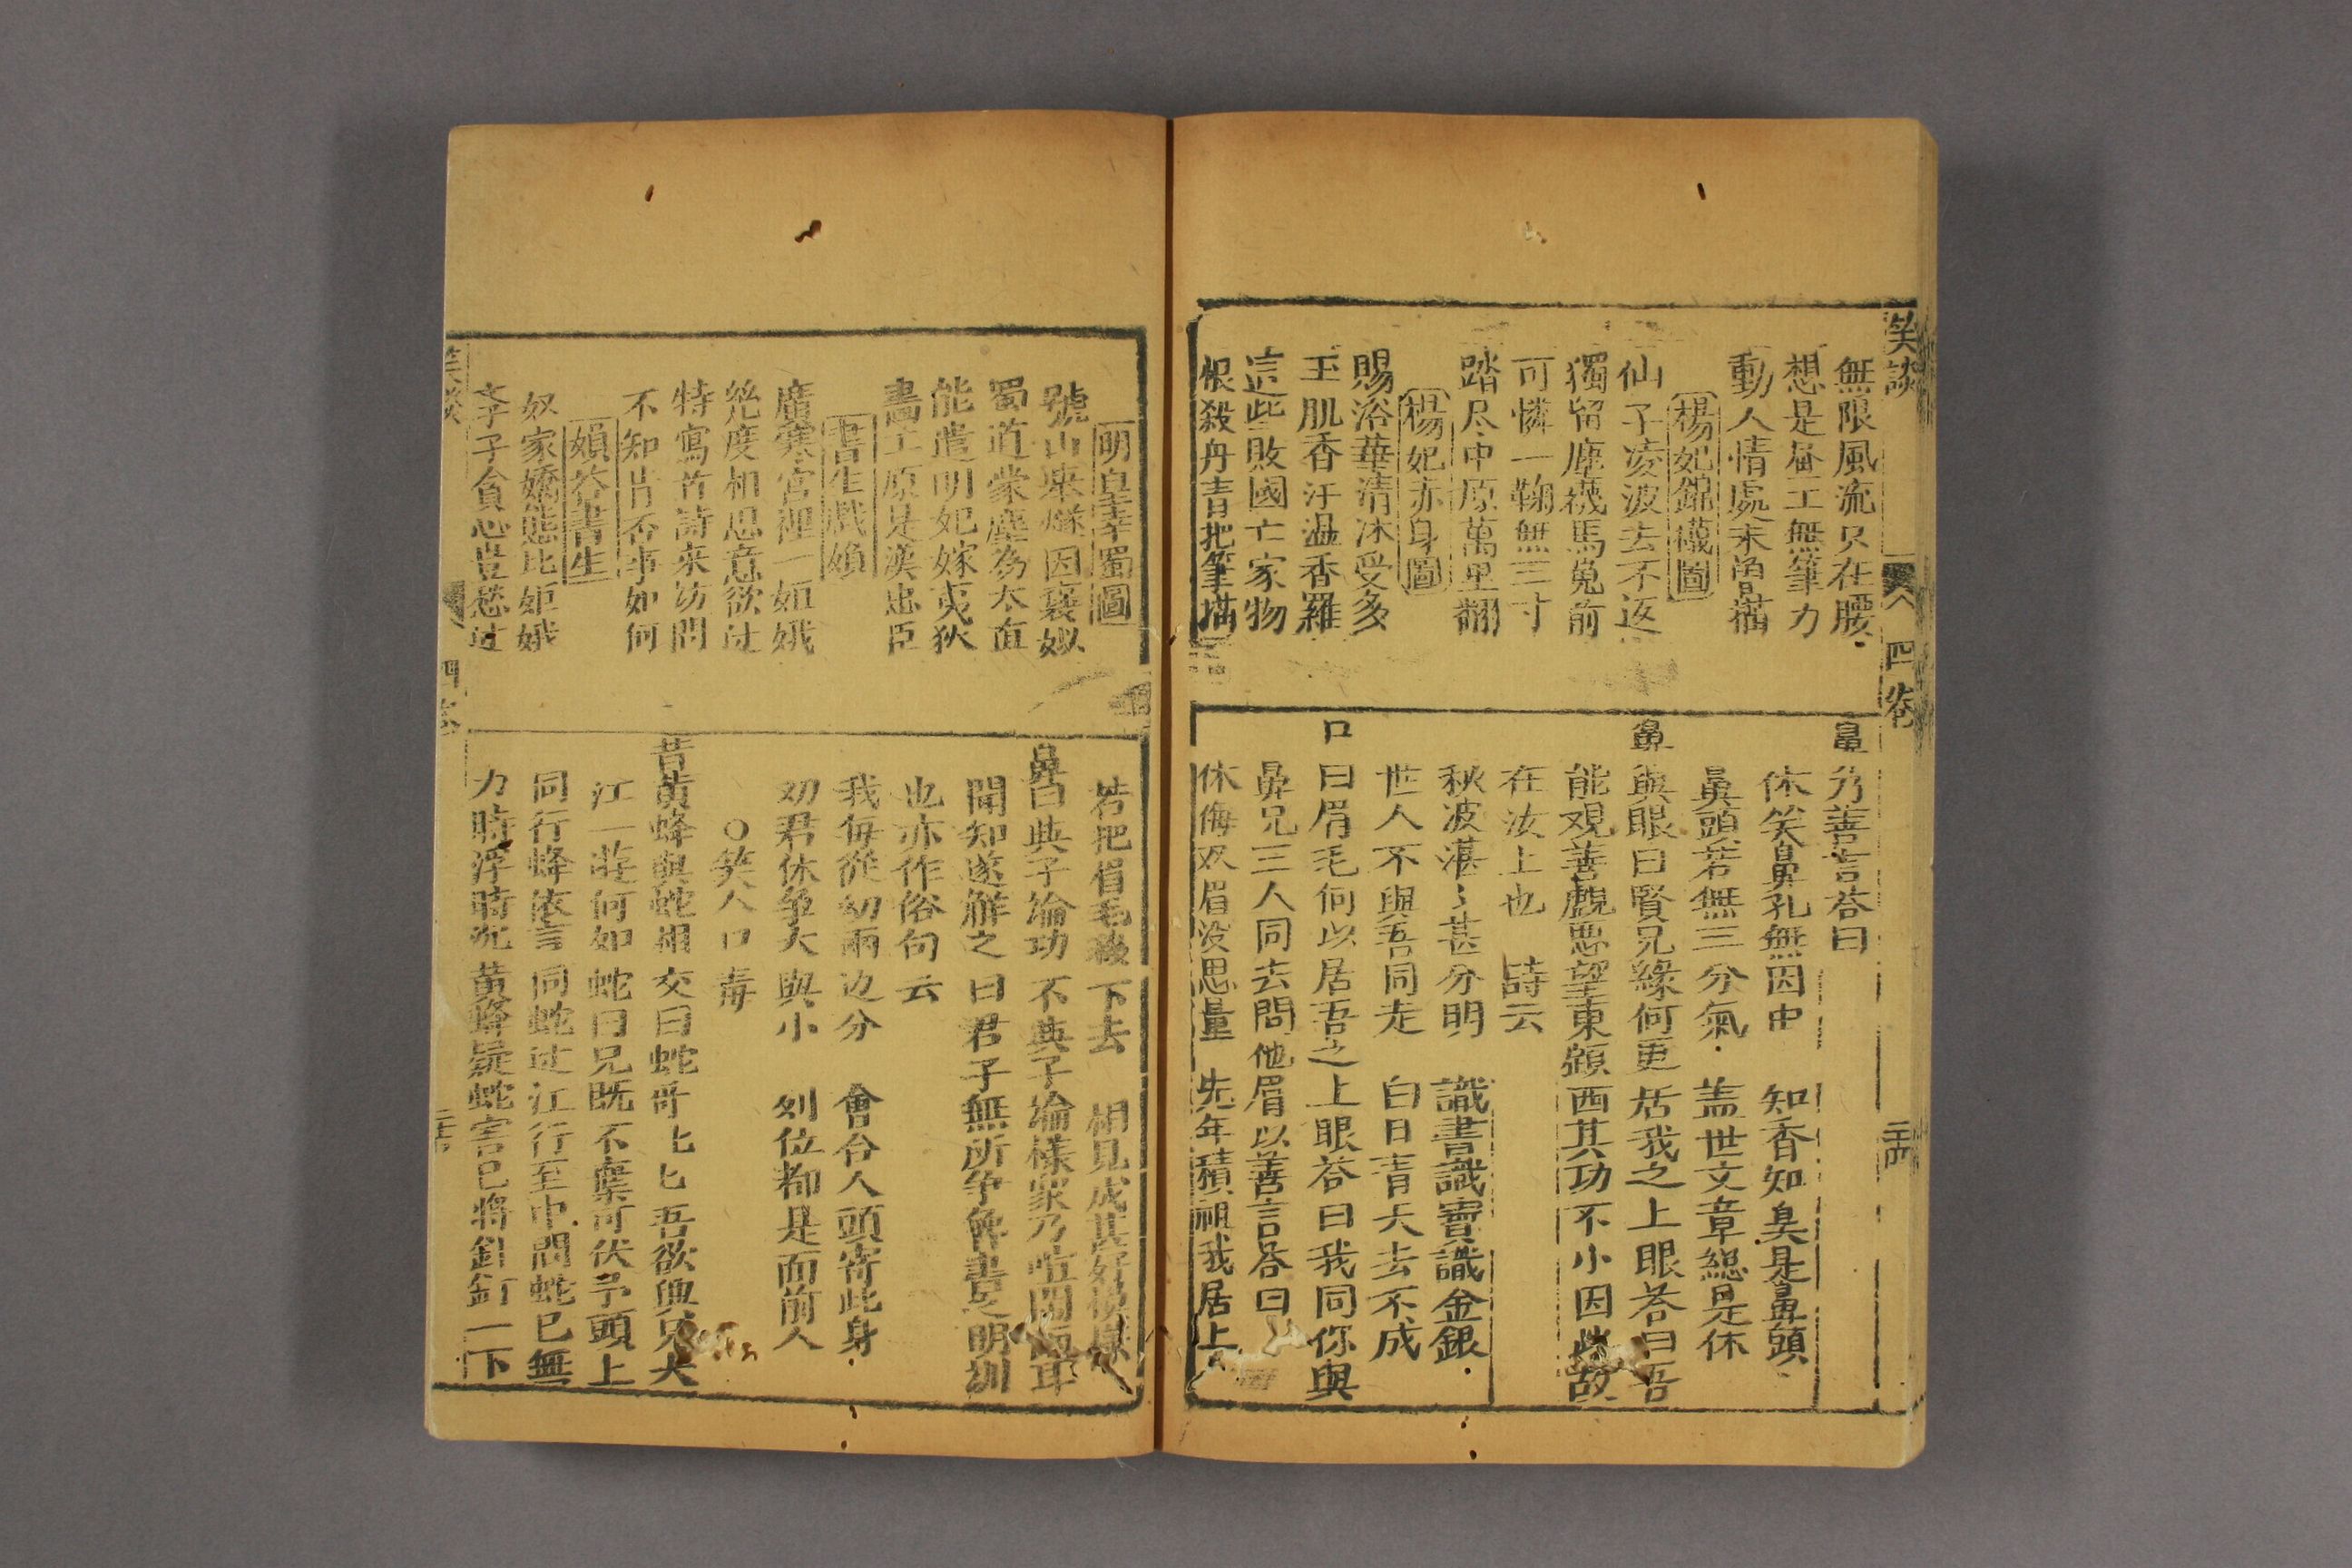 笑談 四卷
無限風流只在腰
想是画工無筆力
動人情處未曾描
楊妃錦襪圖
仙子凌波去不返
獨留塵襪馬嵬前
可憐一鞠無三寸
踏尽中原萬里翻
楊妃赤身圖
賜浴華清沐受多
玉肌香汗濕香羅
這些敗國亡家物
恨殺丹青把筆描
鼻乃善言荅曰
休笑鼻孔無因由 知香知臭是鼻頭
鼻頭若無三分氣 盖世文章總是休
鼻與眼曰賢兄緣何更居我之上眼荅曰吾
能观善觑悪望東顧西其功不小因此故
在汝上也 詩云
秋波湛〻甚分明 識書識寶識金銀
世人不與吾同走 白日青天去不成
口曰眉毛何以居吾之上眼荅曰我同你與
鼻兄三人同去問他眉以善言答曰
休侮双眉没思量 先年積祖我居上
明皇幸蜀圖
號山舉燧因褒姒
蜀道蒙塵為太真
能遣明妃嫁夷狄
畵工原是漢忠臣
書生戲嬪
廣寒宮裡一姮娥
幾度相思意欲过
特寫首詩来訪問
不知肯否事如何
嬪荅書生
奴家嬌態比姮娥
李子貪心豈愁过
若把眉毛移下去 相見成甚好模樣
鼻曰與子論功不與子論樣衆乃喧鬧兩耳
聞知遂觧之曰君子無所争觧書之明訓
也亦作俗句云
我每從幼兩边分 會合人頭寄此身
劝君休争大與小 列位都是面前人
○笑人口毒
昔黄蜂與蛇相交曰蛇哥匕匕吾欲與兄大
江一遊何如蛇曰兄既不棄可伏予頭上
同行蜂依言同蛇过江行至中間蛇已無
力時浮時沉黄蜂疑蛇害已將針釘一下